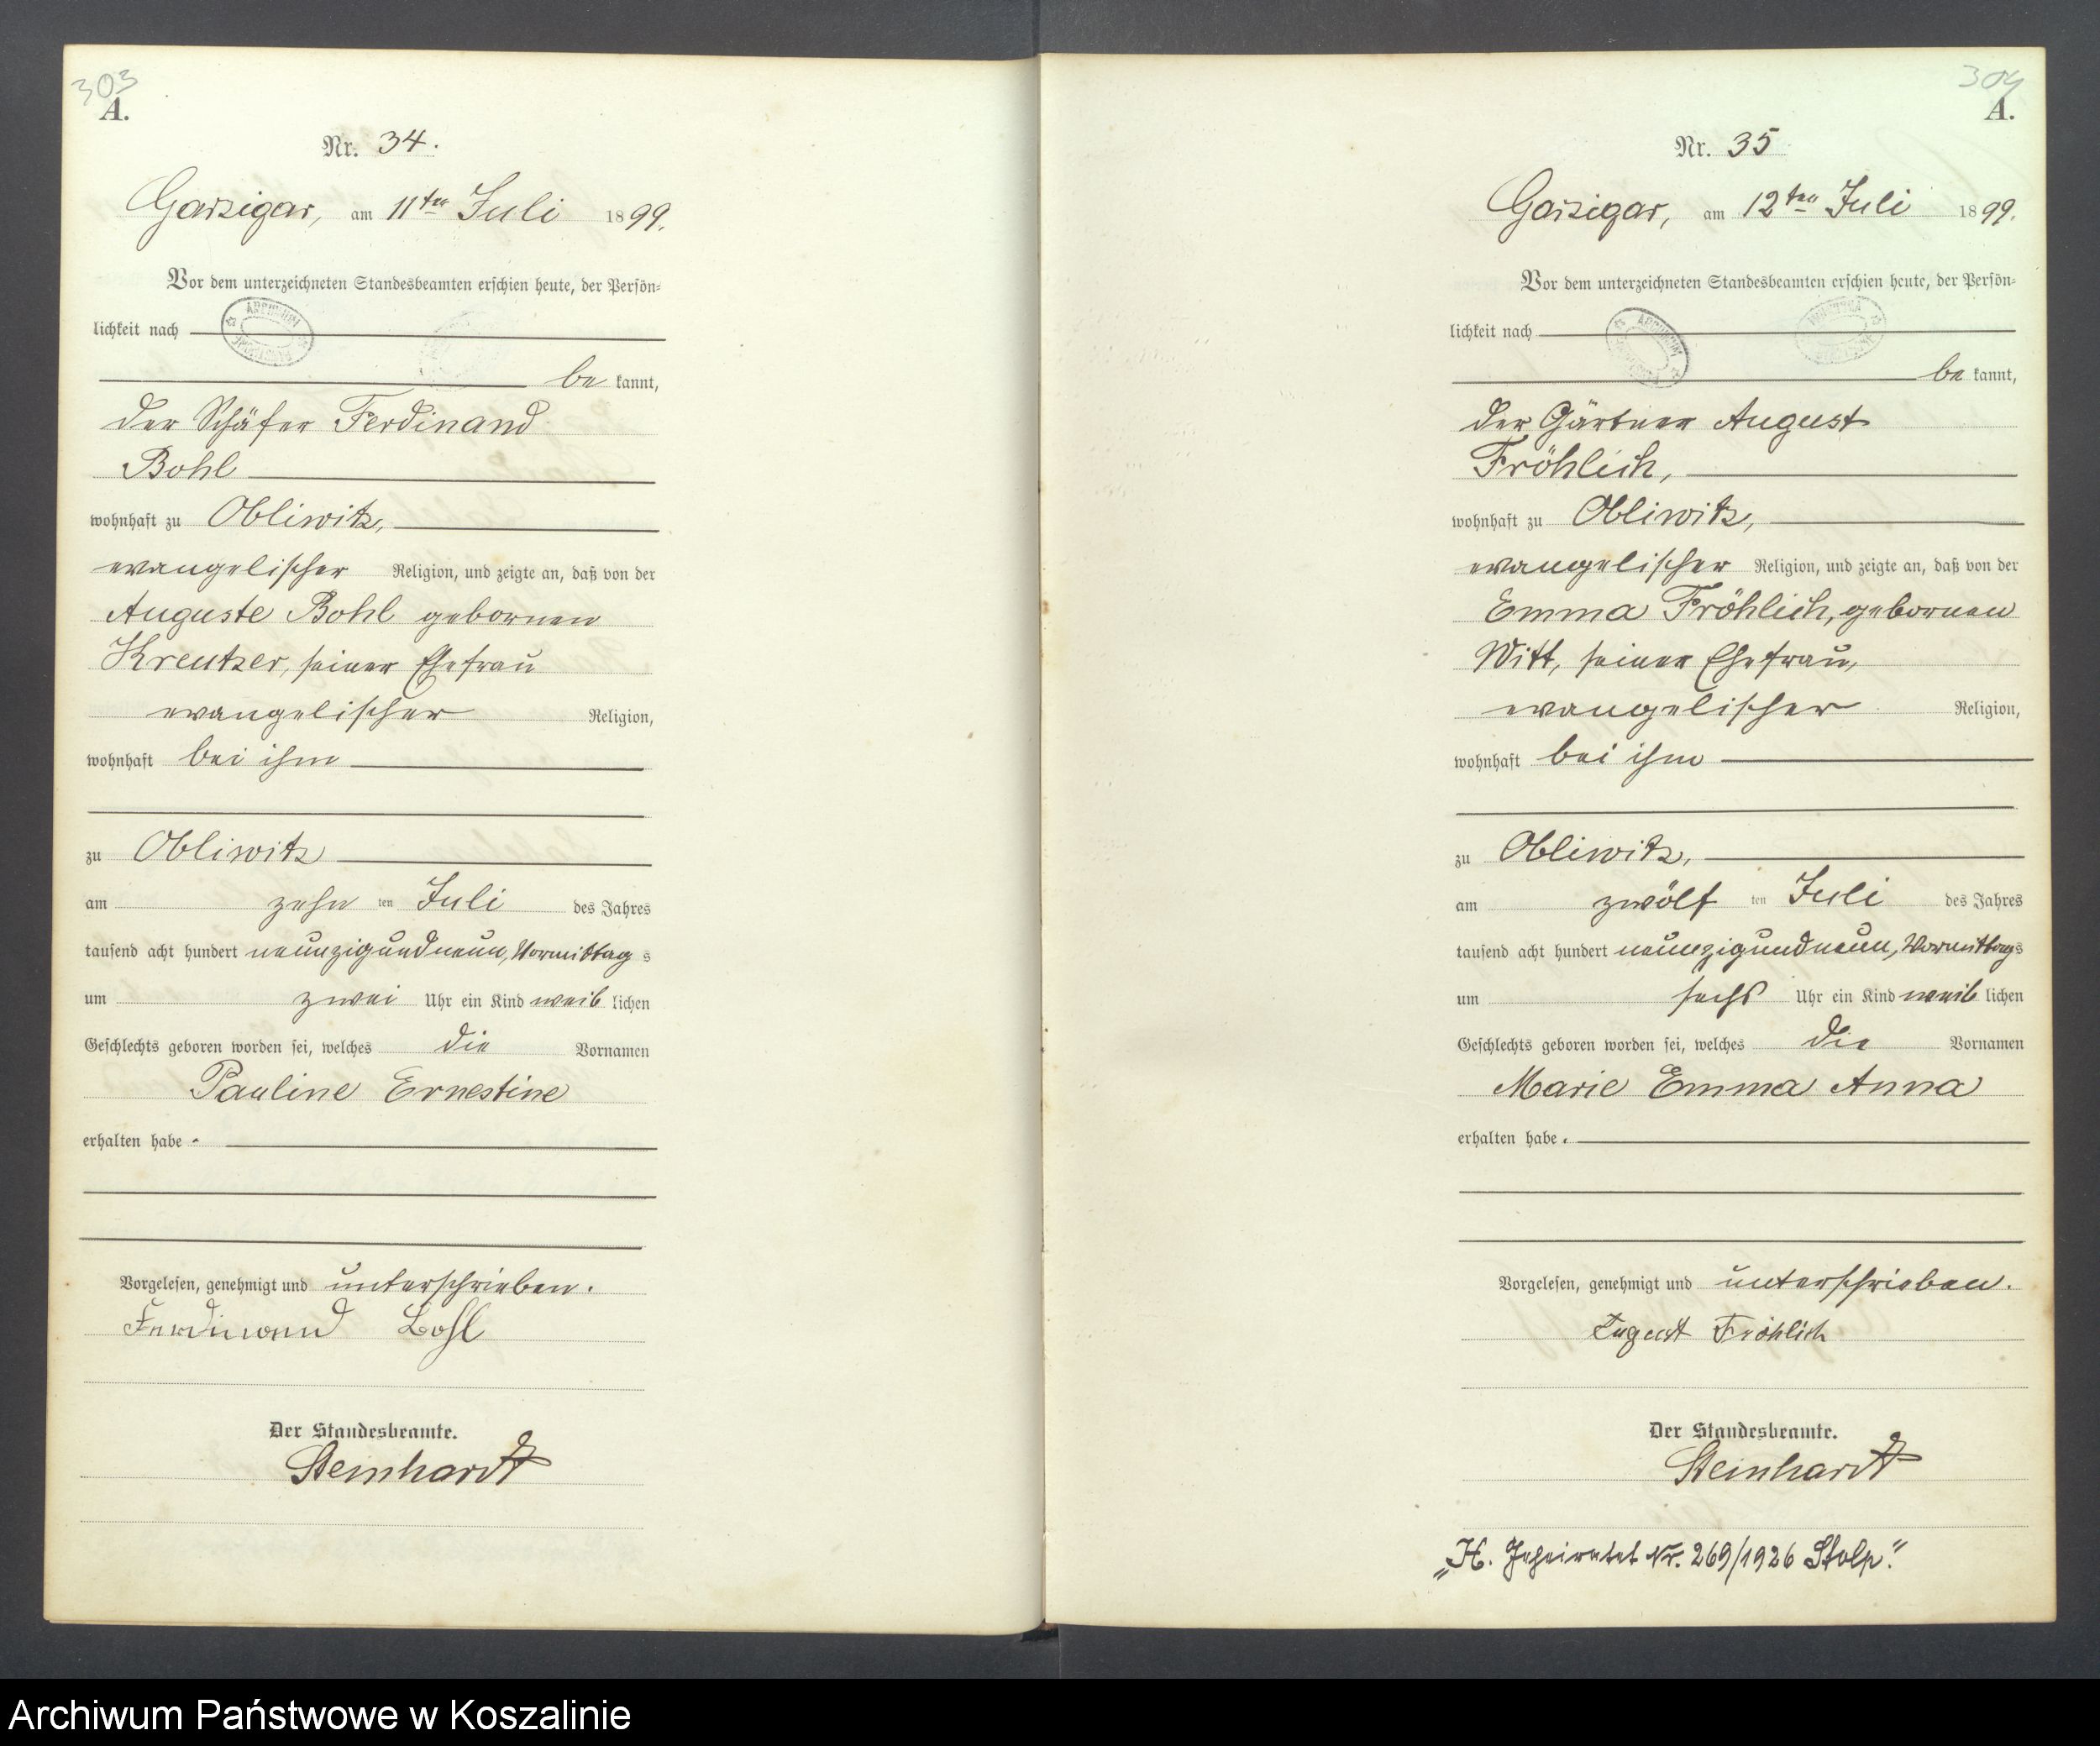 303
A.
Nr. 34.
Garzigar, am 11ten Juli 1899.
Vor dem unterzeichneten Standesbeamten erschien heute, der Persön-
lichkeit nach
be kannt,
der Schäfer Ferdinand
Bohl
wohnhaft zu Obliwitz,
evangelischer Religion, und zeigte an, daß von der
Auguste Bohl gebornen
Kreutzer, seiner Ehefrau
evangelischer Religion,
wohnhaft bei ihm
zu Obliwitz
am zehn ten Juli des Jahres
tausend acht hundert neunzigundneun, Vormittag s
um zwei Uhr ein Kind weib lichen
Geschlechts geboren worden sei, welches die Vornamen
Pauline Ernestine
erhalten habe.
Vorgelesen, genehmigt und unterschrieben.
Ferdinand Bohl
Der Standesbeamte.
Steinhardt
304
A.
Nr. 35
Garzigar, am 12ten Juli 1899.
Vor dem unterzeichneten Standesbeamten erschien heute, der Persön-
lichkeit nach
be kannt,
der Gärtner August
Fröhlich,
wohnhaft zu Obliwitz,
evangelischer Religion, und zeigte an, daß von der
Emma Fröhlich, gebornen
Witt, seiner Ehefrau,
evangelischer Religion,
wohnhaft bei ihm
zu Obliwitz,
am zwölf ten Juli des Jahres
tausend acht hundert neunzigundneun, Vormittags
um sechs Uhr ein Kind weib lichen
Geschlechts geboren worden sei, welches die Vornamen
Marie Emma Anna
erhalten habe.
Vorgelesen, genehmigt und unterschrieben.
August Fröhlich
Der Standesbeamte.
Steinhardt
„H. Geheiratet Nr. 269/1926 Stolp."
Archiwum Państwowe w Koszalinie